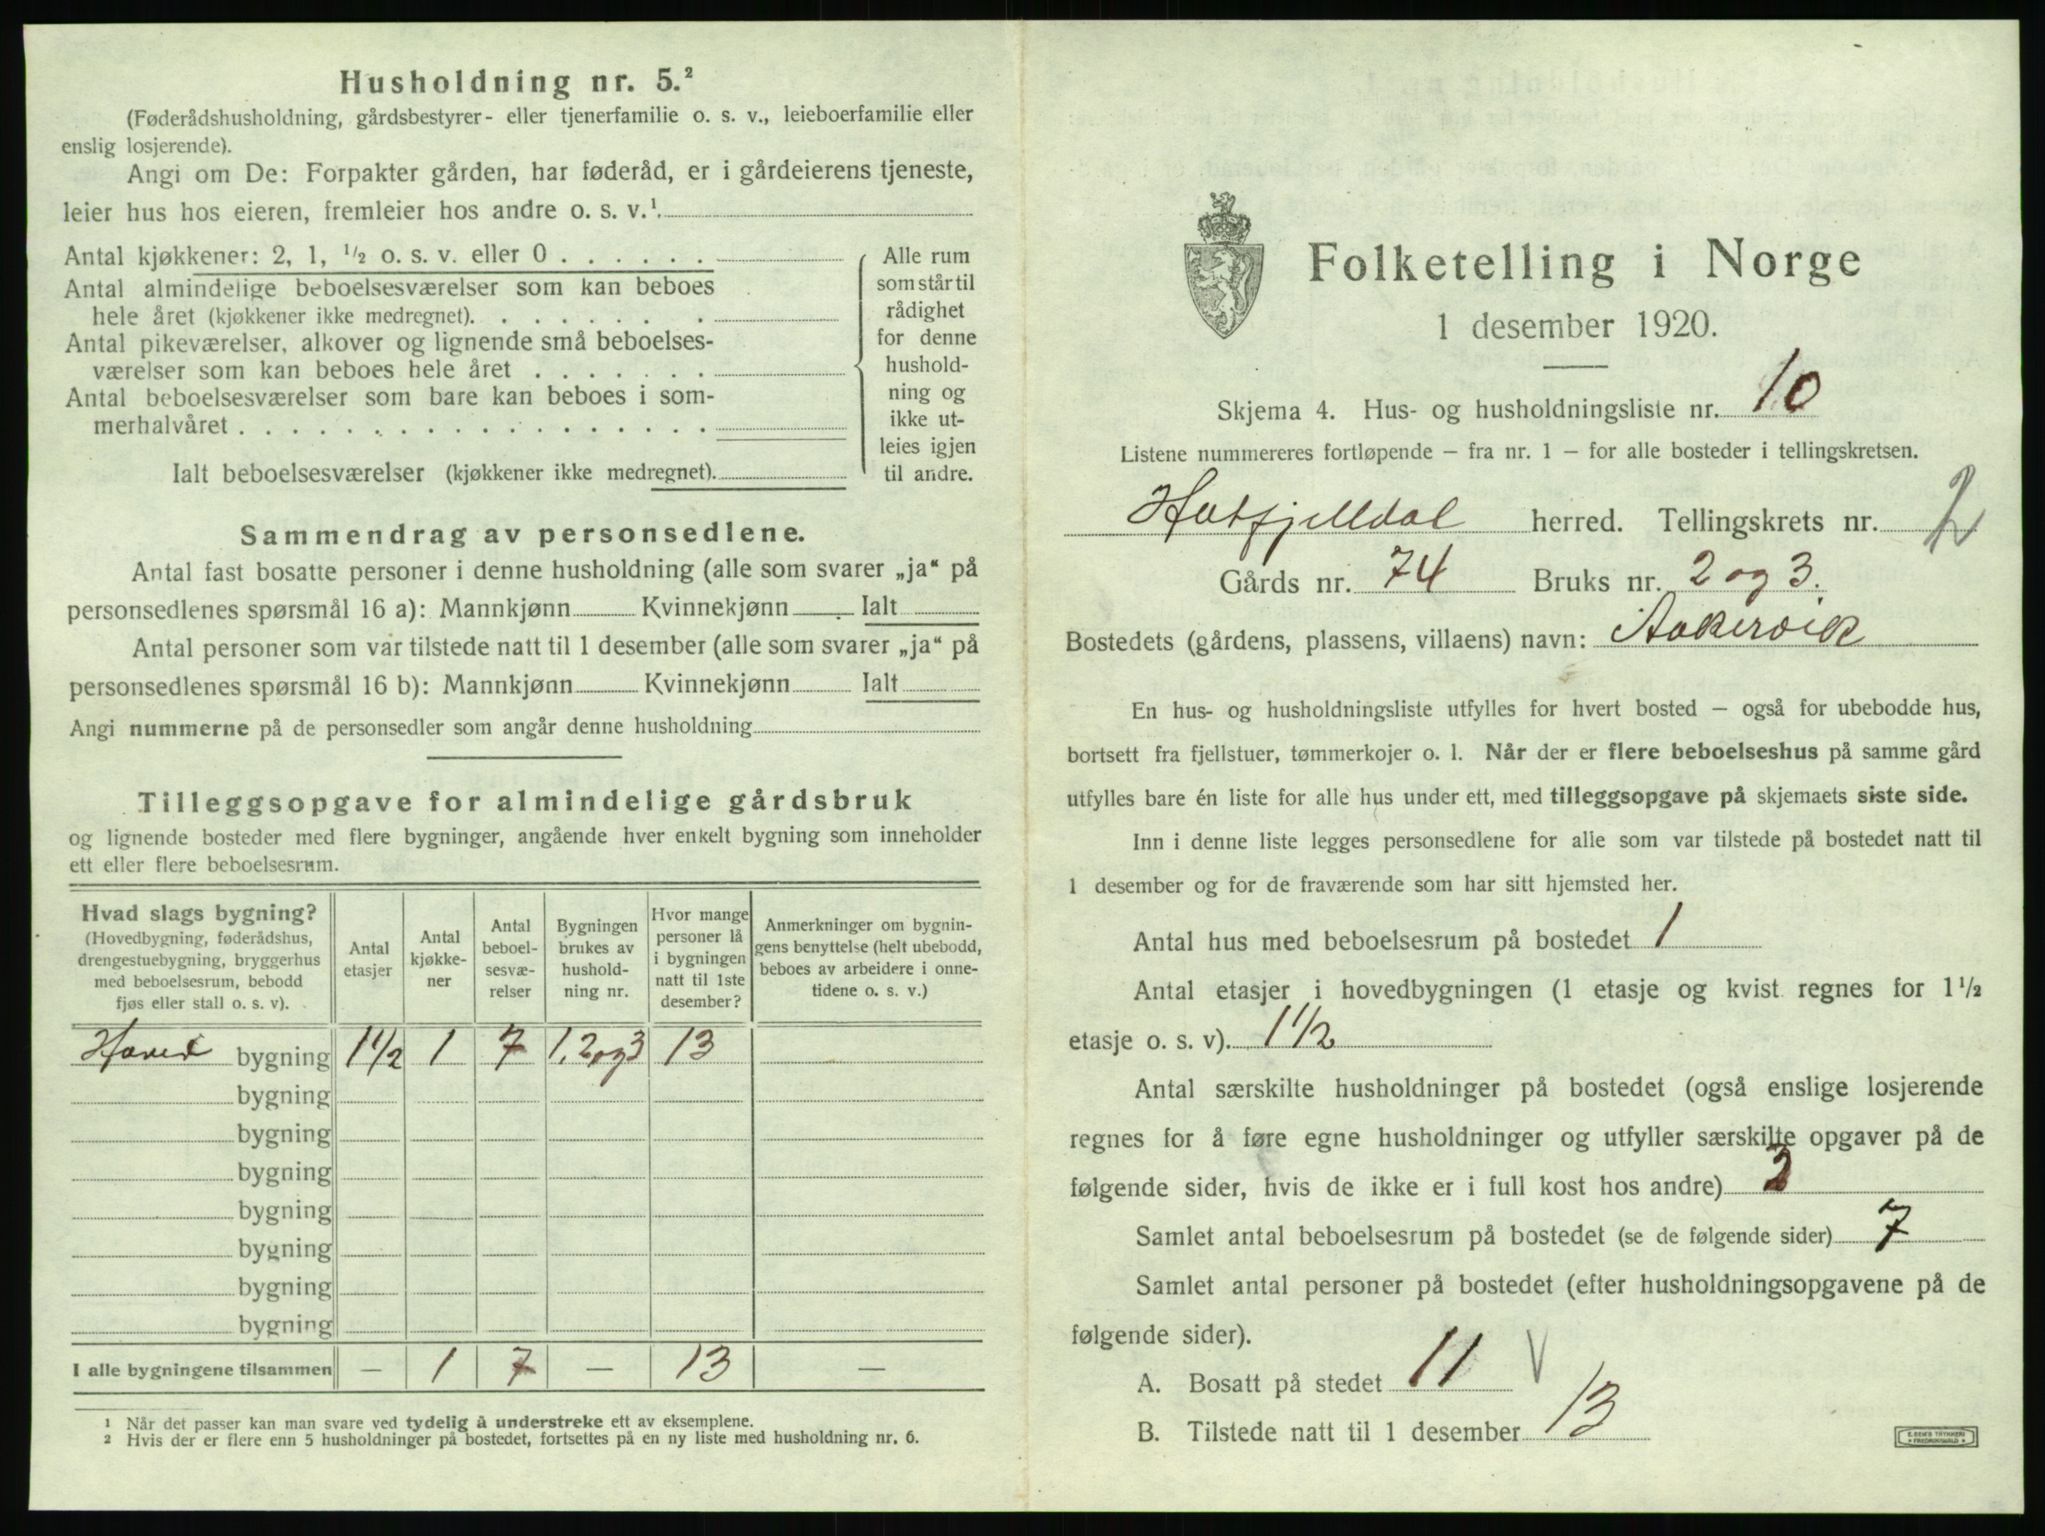 Husholdning nr. 5.²
(Føderådshusholdning, gårdsbestyrer- eller tjenerfamilie o. s. v., leieboerfamilie eller
enslig losjerende).
Angi om De: Forpakter gården, har føderåd, er i gårdeierens tjeneste,
leier hus hos eieren, fremleier hos andre o. s. v.¹.
Antal kjøkkener: 2, 1, ½ o. s. v. eller 0 . . . . . .
Antal almindelige beboelsesværelser som kan beboes
hele året (kjøkkener ikke medregnet). . . . . . . .
Antal pikeværelser, alkover og lignende små beboelses-
værelser som kan beboes hele året . . . . . . .
Antal beboelsesværelser som bare kan beboes i som-
merhalvåret . . . . . . . . . . . . . . . . . .
Ialt beboelsesværelser (kjøkkener ikke medregnet).
Alle rum
som står til
rådighet
for denne
hushold-
ning og
ikke ut-
leies igjen
til andre.
Sammendrag av personsedlene.
Antal fast bosatte personer i denne husholdning (alle som svarer „ja“ på
personsedlenes spørsmål 16 a): Mannkjønn Kvinnekjønn Ialt
Antal personer som var tilstede natt til 1 desember (alle som svarer „ja“ på
personsedlenes spørsmål 16 b): Mannkjønn Kvinnekjønn Ialt
Angi nummerne på de personsedler som angår denne husholdning
Tilleggsopgave for almindelige gårdsbruk
og lignende bosteder med flere bygninger, angående hver enkelt bygning som inneholder
ett eller flere beboelsesrum.
Hvad slags bygning?
(Hovedbygning, føderådshus,
drengestuebygning, bryggerhus
med beboelsesrum, bebodd
fjøs eller stall o. s. v).
Antal
etasjer
Antal
kjøkke-
ner
Antal
beboel-
sesvæ-
relser
Bygningen
brukes av
hushold-
ning nr.
Hvor mange
personer lå
i bygningen
natt til 1ste
desember?
Anmerkninger om bygnin-
gens benyttelse (helt ubebodd,
beboes av arbeidere i onne-
tidene o. s. v.)
Hoved bygning 1½ 1 7 1, 2 og 3 13
bygning
bygning
bygning
bygning
bygning
bygning
bygning
I alle bygningene tilsammen — 1 7 — 13 —
¹ Når det passer kan man svare ved tydelig å understreke ett av eksemplene.
² Hvis der er flere enn 5 husholdninger på bostedet, fortsettes på en ny liste med husholdning nr. 6.
Folketelling i Norge
1 desember 1920.
Skjema 4. Hus- og husholdningsliste nr. 10
Listene nummereres fortløpende – fra nr. 1 – for alle bosteder i tellingskretsen.
Hatfjelldal herred. Tellingskrets nr. 2
Gårds nr. 74 Bruks nr. 2 og 3.
Bostedets (gårdens, plassens, villaens) navn: Aakervik
En hus- og husholdningsliste utfylles for hvert bosted – også for ubebodde hus,
bortsett fra fjellstuer, tømmerkojer o. l. Når der er flere beboelseshus på samme gård
utfylles bare én liste for alle hus under ett, med tilleggsopgave på skjemaets siste side.
Inn i denne liste legges personsedlene for alle som var tilstede på bostedet natt til
1 desember og for de fraværende som har sitt hjemsted her.
Antal hus med beboelsesrum på bostedet 1
Antal etasjer i hovedbygningen (1 etasje og kvist regnes for 1½
etasje o. s. v). 1½
Antal særskilte husholdninger på bostedet (også enslige losjerende
regnes for å føre egne husholdninger og utfyller særskilte opgaver på de
følgende sider, hvis de ikke er i full kost hos andre)
Samlet antal beboelsesrum på bostedet (se de følgende sider) 7
Samlet antal personer på bostedet (efter husholdningsopgavene på de
følgende sider).
A. Bosatt på stedet 11 V
B. Tilstede natt til 1 desember 13